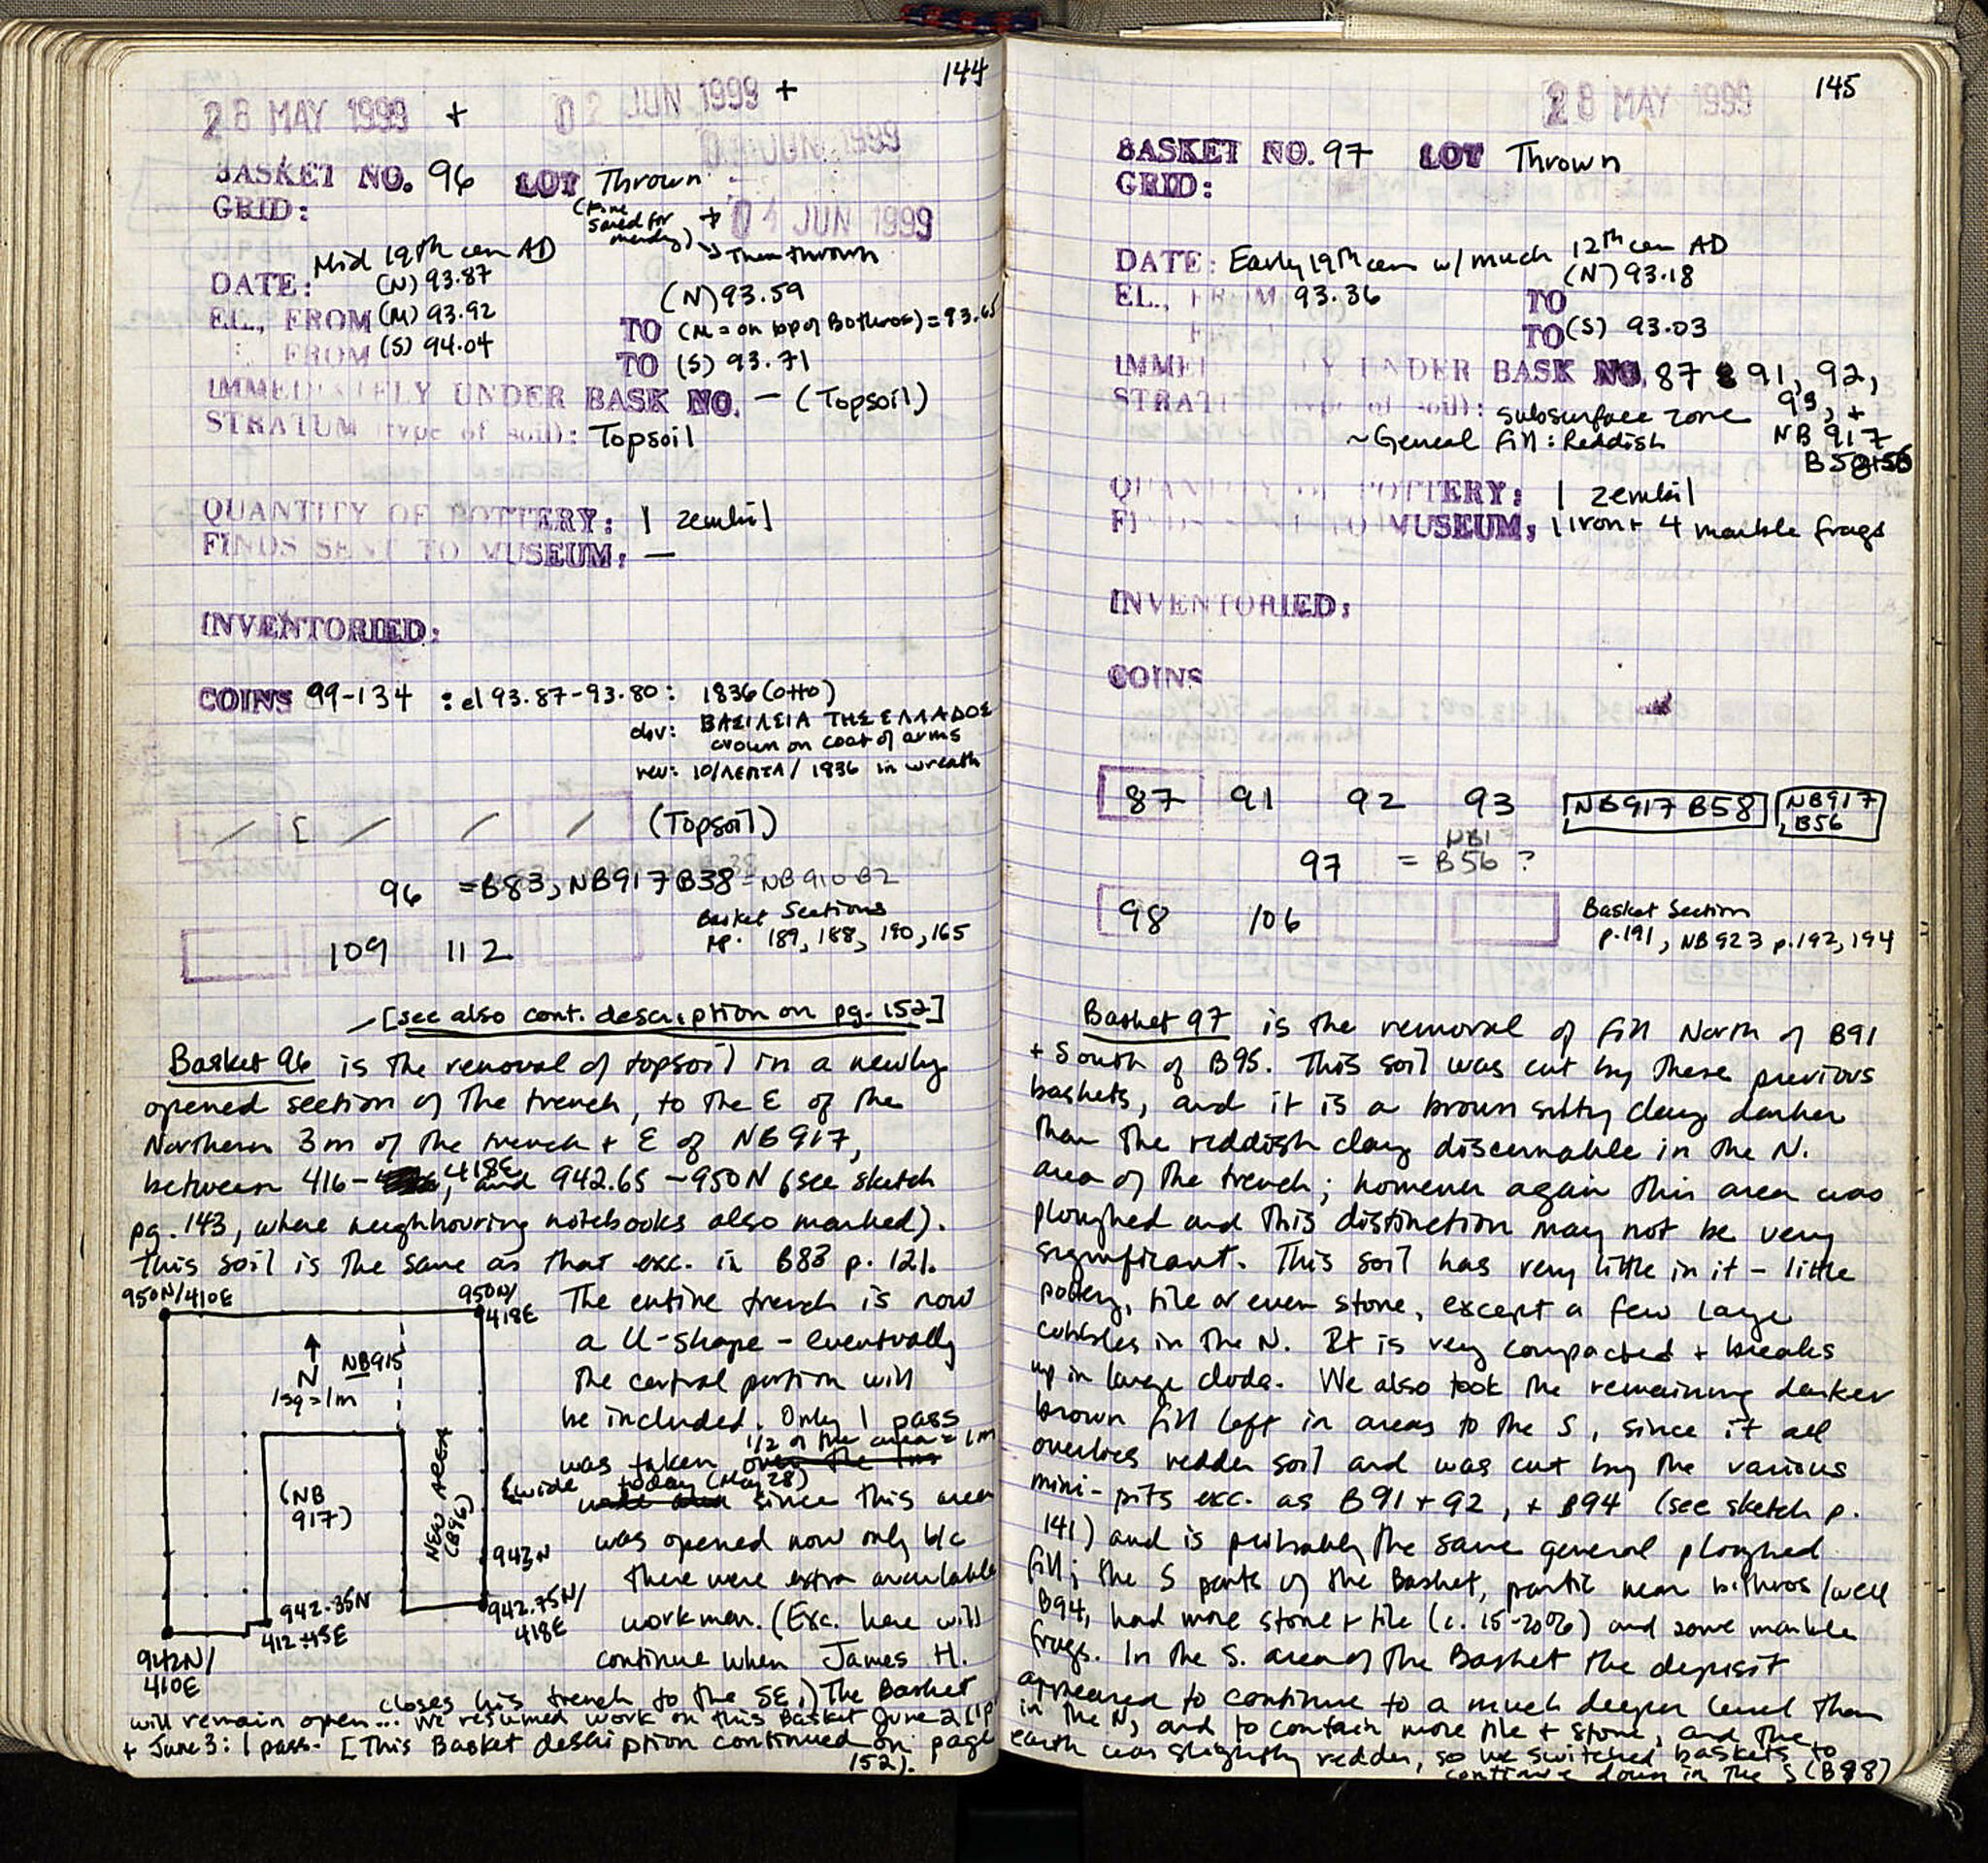 144
28 MAY 1999 + 02 JUN 1999 +
03 JUN 1999
BASKET NO. 96 LOT Thrown
GRID: (Fine saved for mending) + 04 JUN 1999
→ Then thrown
Mid 19th cen AD
DATE: (N) 93.87 (N) 93.59
EL., FROM (M) 93.92 TO (M = on top of Bothros) = 93.65
FROM (S) 94.04 TO (S) 93.71
IMMEDIATELY UNDER BASK NO. - (Topsoil)
STRATUM (type of soil): Topsoil
QUANTITY OF POTTERY: 1 zembil
FINDS SENT TO MUSEUM: —
INVENTORIED:
COINS 99-134 : el 93.87-93.80: 1836 (Otto)
obv: ΒΑΣΙΛΕΙΑ ΤΗΣ ΕΛΛΑΔΟΣ
crown on coat of arms
rev: 10/ΛΕΠΤΑ/ 1836 in wreath
/ [ / / / (Topsoil)
96 =B83, NB917 B38 - NB910 B2
109 112
Basket Sections
pp. 189, 188, 190, 165
[see also cont. description on pg. 152]
Basket 96 is the removal of topsoil in a newly
opened section of the trench, to the E of the
Northern 3m of the trench + E of NB917,
between 416-418E, and 942.65 - 950N (see sketch
pg. 143, where neighbouring notebooks also marked).
This soil is the same as that exc. in B83 p. 121.
950N/410E
950N/
418E
N
1sq=1m
NB915
(NB
917)
NEW AREA
(B96)
943N
942.75N/
418E
942.35N
412.45E
942N/
410E
The entire trench is now
a U-shape - eventually
the central portion will
be included. Only 1 pass
was taken 1/2 of the area = 1m
{wide today (May 28) since this area
was opened now only b/c
there were extra available
workmen. (Exc. here will
continue when James H.
closes his trench to the SE.) The Basket
will remain open... We resumed work on this Basket June 2 (1p
+ June 3: 1 pass. [This Basket description continued on page
152).
145
28 MAY 1999
BASKET NO. 97 LOT Thrown
GRID:
DATE: Early 19th cen w/ much 12th cen AD
EL., FROM 93.36 TO (N) 93.18
TO (S) 93.03
IMMEDIATELY UNDER BASK NO. 87 91, 92,
93, +
NB 917
B58+56
STRATUM (type of soil): subsurface zone
~General fill: Reddish
QUANTITY OF POTTERY: 1 zembil
FINDS SENT TO MUSEUM: 1 iron + 4 marble frags
INVENTORIED:
COINS
87 91 92 93 NB917 B58 NB917 B56
97 = NB17 B56 ?
98 106
Basket Section
p. 191, NB 923 p. 192, 194
Basket 97 is the removal of fill North of B91
+ South of B95. This soil was cut by these previous
baskets, and it is a brown silty clay darker
than the reddish clay discernable in the N.
area of the trench; however again this area was
ploughed and this distinction may not be very
significant. This soil has very little in it - little
pottery, tile or even stone, except a few large
cobbles in the N. It is very compacted + breaks
up in large clods. We also took the remaining darker
brown fill left in areas to the S, since it all
overlies redder soil and was cut by the various
mini-pits exc. as B91 + 92, + B94 (see sketch p.
141) and is probably the same general ploughed
fill; the S parts of the Basket, partic near bothros/well
B94, had more stone + tile (c. 15-20%) and some marble
frags. In the S. area of the Basket the deposit
appeared to continue to a much deeper level than
in the N, and to contain more tile + stone, and the
earth was slightly redder, so we switched baskets to
continue down in the S (B98)